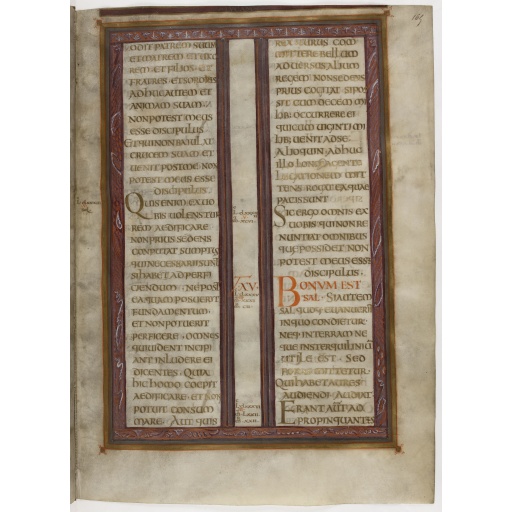 ODIT PATREM SUUM
ET MATREM ET UXO
REM ET FILIOS ET
FRATRES ET SORORES
ADHUC AUTEM ET
ANIMAM SUAM
NON POTEST MEUS
ESSE DISCIPULUS
ET QUI NON BAIULAT
CRUCEM SUAM ET
UENIT POST ME NON
POTEST MEUS ESSE
DISCIPULUS
QUIS ENIM EX UO
BIS UOLENS TUR
REM AEDIFICARE
NON PRIUS SEDENS
CONPUTAT SUMPTUS
QUI NECESSARII SUNT
SI HABET AD PERFI
CIENDUM NE POSTE
EA QUAM POSUERIT
FUNDAMENTUM
ET NON POTUERIT
PERFICERE OMNES
QUI UIDENT INCIPI
ANT INLUDERE EI
DICENTES QUIA
HIC HOMO COEPIT
AEDIFICARE ET NON
POTUIT CONSUM
MARE AUT QUIS
REX ITURUS COM
MITTERE BELLUM
ADUERSUS ALIUM
REGEM NON SEDENS
PRIUS COGITAT SI POS
SIT CUM DECEM MI
LIB; OCCURRERE EI
QUI CUM UIGINTI MI
LIB; UENIT AD SE
ALIOQUIN ADHUC
ILLO LONGE AGENTE
LEGATIONEM MIT
TENS ROGAT EA QUAE
PACIS SUNT
SIC ERGO OMNIS EX
UOBIS QUI NON RE
NUNTIAT OMNIBUS
QUAE POSSIDET NON
POTEST MEUS ESSE
DISCIPULUS
BONUM EST
SAL SI AUTEM
SAL QUOQ; EUANUERIT
IN QUO CONDIETUR
NEQ; IN TERRAM NE
QUE IN STERQUILINIUM
UTILE EST SED
FORAS MITTETUR
QUI HABET AURES
AUDIENDI AUDIAT
ERANT AUTEM
PROPINQUANTES